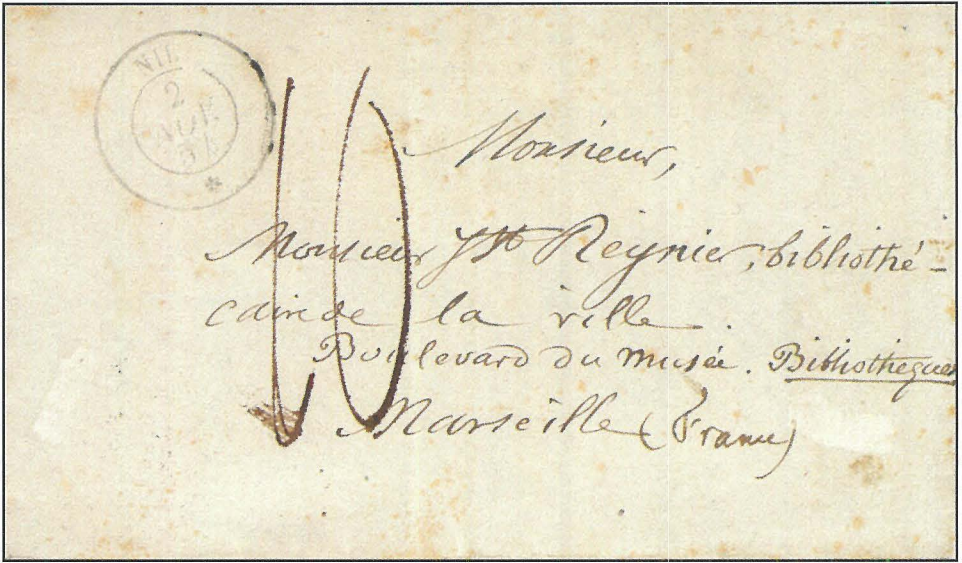 NIL
2
Monsieur,
Monsieur Jh Reynier, bibliothé-
caire de la ville.
Boulevard du musée. Bibliothèque
Marseille (France)
10